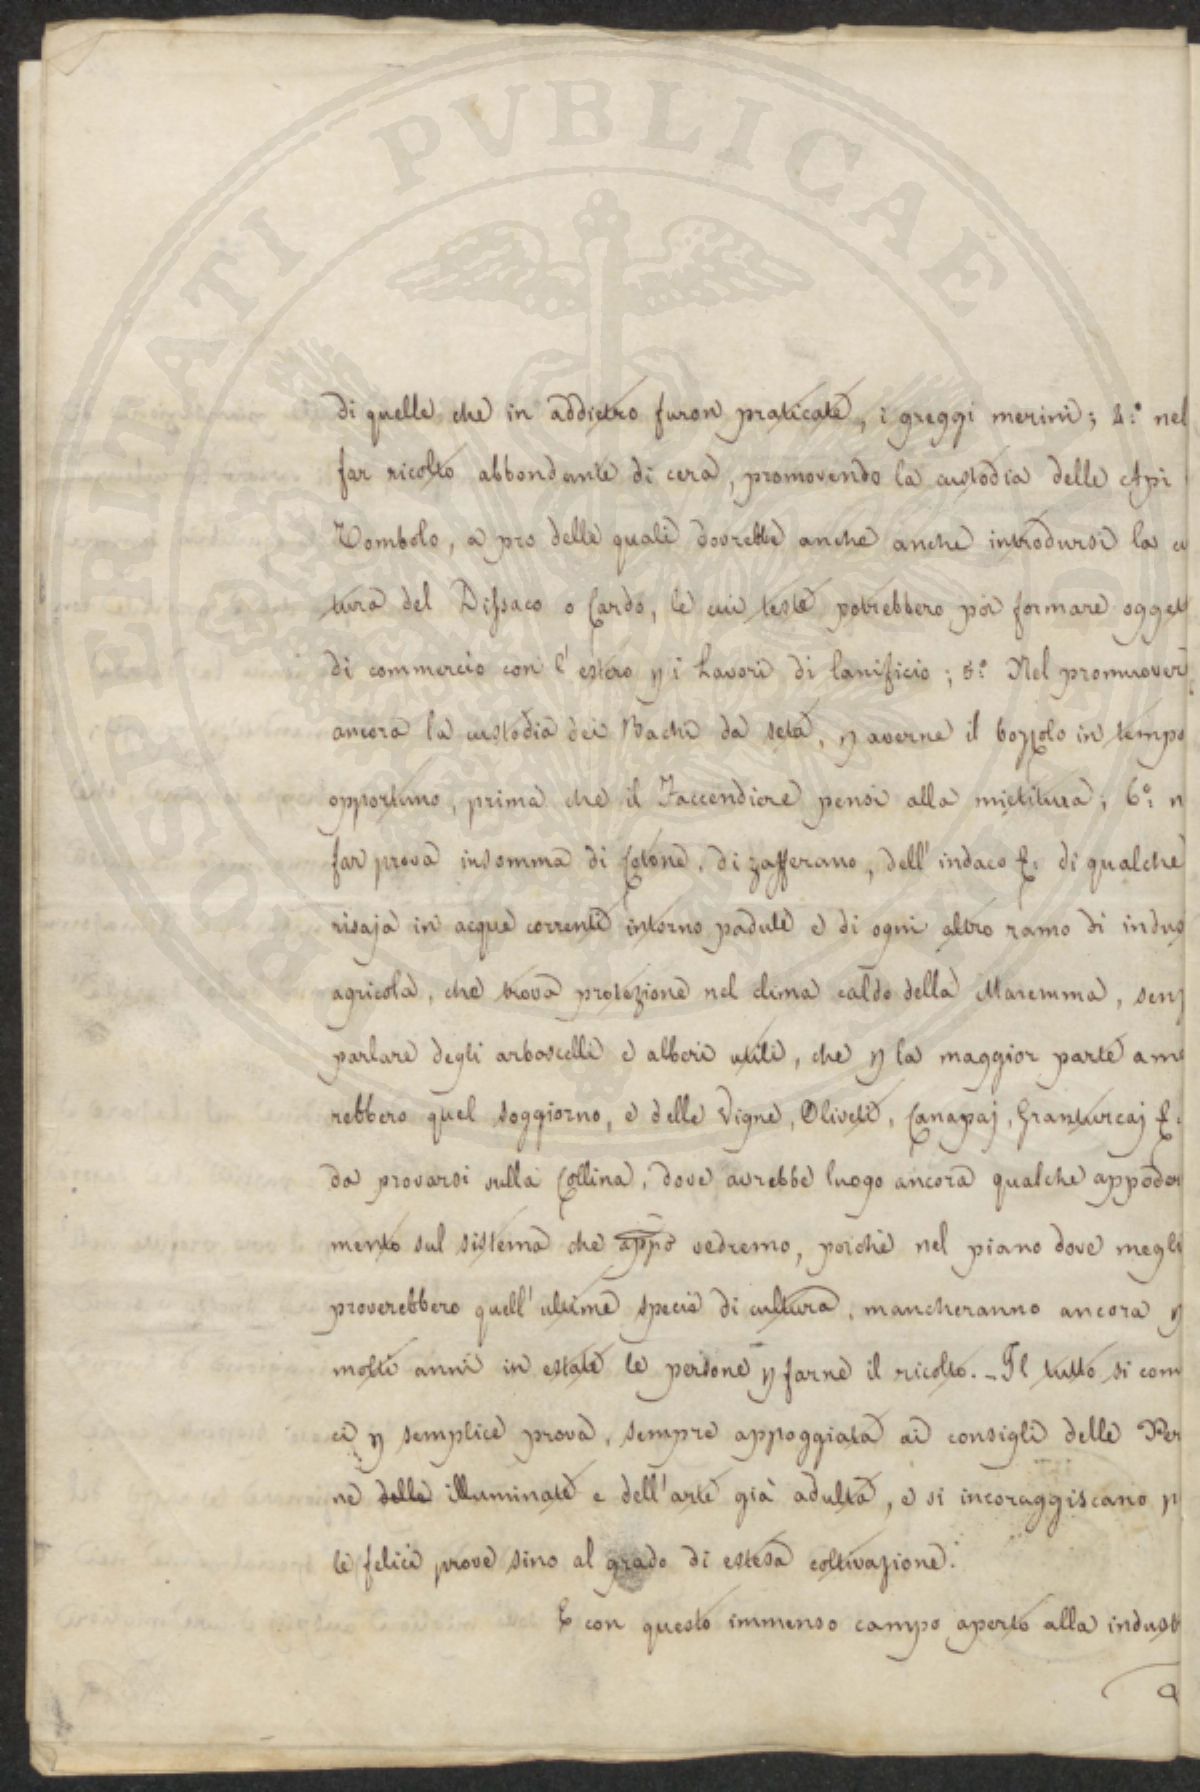 PROSPERITATI PVBLICAE
di quelle che in addietro furon praticate, i greggi merini; 4.° nel
far ricolto abbondante di cera, promovendo la custodia delle Api
Tombolo, a pro delle quali dovrebbe anche anche introdursi la cu
tura del Dissaco o Cardo, le cui teste potrebbero poi formare ogget
di commercio con l'estero p i Lavori di lanificio; 5.° Nel promuover
ancora la custodia dei Bachi da seta, p averne il bozzolo in tempo
opportuno, prima che il Faccendiere pensi alla mietitura; 6.° n
far prova insomma di Cotone, di zafferano, dell'indaco &. di qualche
risaja in acque correnti intorno padule e di ogni altro ramo di indus
agricola, che trova protezione nel clima caldo della Maremma, senz
parlare degli arboscelli e alberi utili, che p la maggior parte ame
rebbero quel soggiorno, e delle Vigne, Oliveti, Canapaj, Granturcaj &.
da provarsi sulla Collina, dove avrebbe luogo ancora qualche appoder
mento sul sistema che appo vedremo, poichè nel piano dove megli
proverebbero quell'ultime specie di cultura, mancheranno ancora p
molti anni in estate le persone p farne il ricolto. - Il tutto si com
ci p semplice prova, sempre appoggiata ai consigli delle Per
ne delle illuminate e dell'arte già adulta, e si incoraggiscano p
le felici prove sino al grado di estesa coltivazione.
E con questo immenso campo aperto alla indust